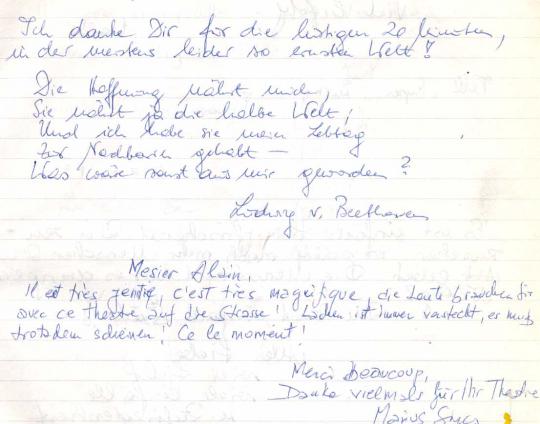 Ich danke Dir für die lustigen 20 Minuten,
in der meistens leider so ernsten Welt!
Die Hoffnung nährt mich,
Sie nährt ja die halbe Welt,
Und ich habe sie mein Lebtag
Zur Nachbarin gehabt —
Was wäre sonst aus mir geworden?
Ludwig v. Beethoven
Mesier Alain,
Il est très gentie, c'est très mageifique, die Leute brauchen Sie
avec ce theatre auf die Strasse! Lachen ist immer versteckt, es muss
trotzdem scheinen! Ce le moment!
Merci Beaucoup,
Danke vielmals für Ihr Theatre
Marius